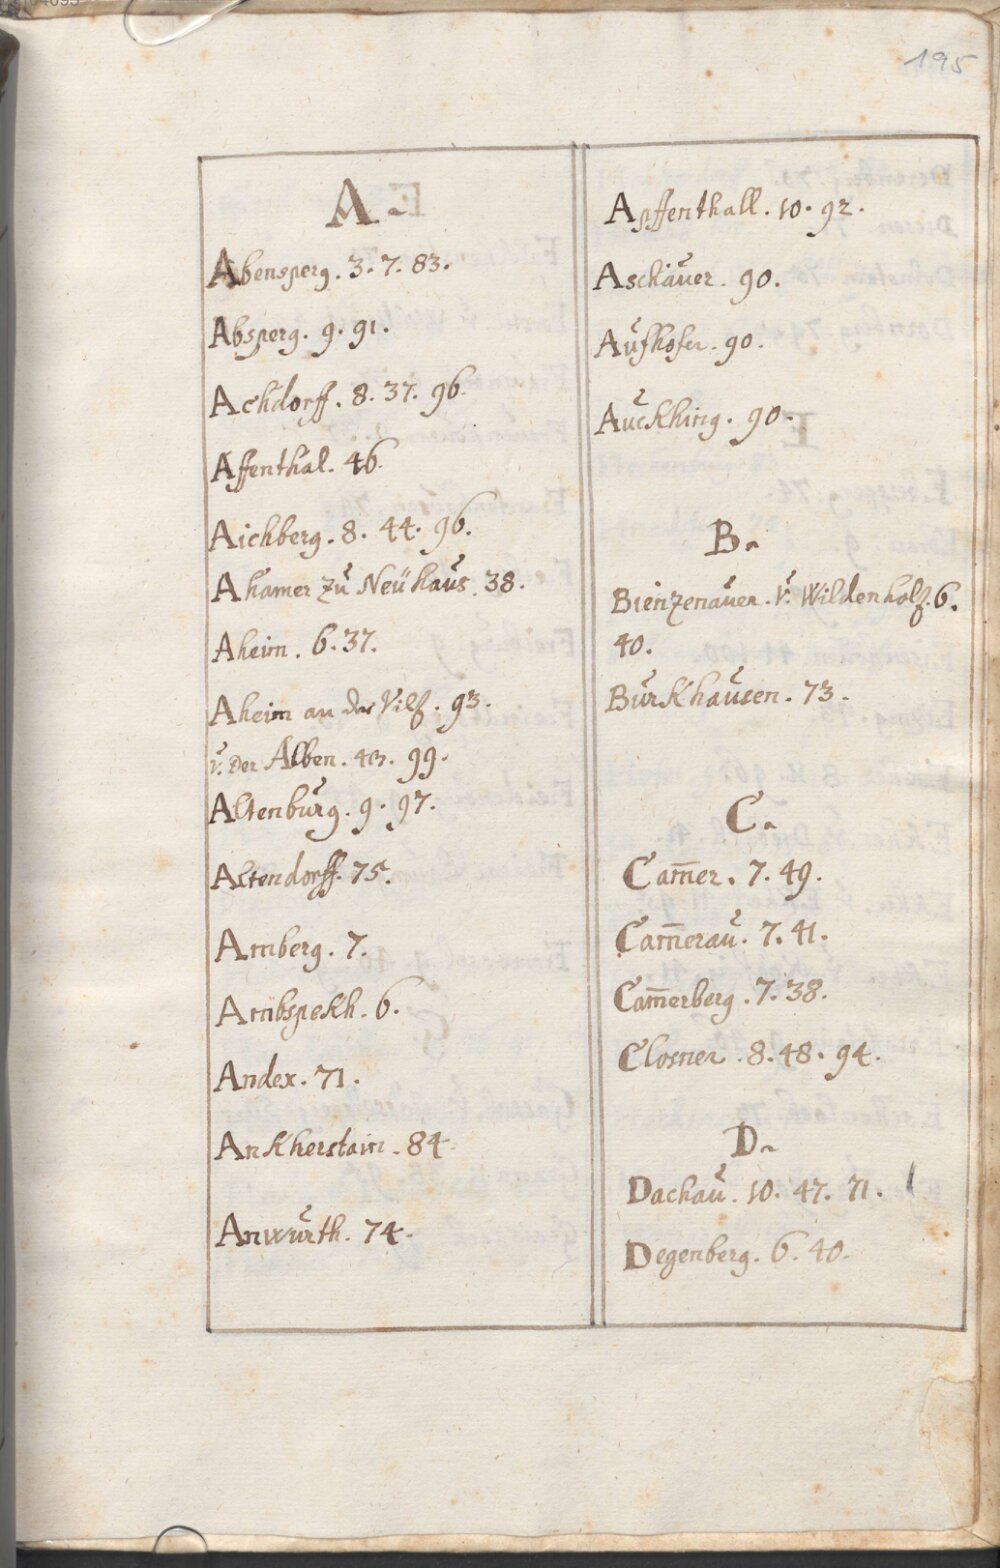 195
A
Abensperg. 3. 7. 83.
Absperg. 9. 91.
Achdorff. 8. 37. 96.
Affenthal. 46.
Aichberg. 8. 44. 96.
Ahamer zŭ Neühaŭs. 38.
Aheim. 6. 37.
Aheim an der Vilß. 93.
v. Der Alben. 40. 99.
Altenbŭrg. 9. 97.
Altendorff. 75.
Amberg. 7.
Ambspekh. 6.
Andex. 71.
Ankherstain. 84.
Anwŭrth. 74.
Apffenthall. 10. 92.
Aschaŭer. 90.
Aŭfhofer. 90.
Aŭckhing. 90.
B.
Bienzenaŭer. v. Wildenholz. 6.
40.
Bŭrkhaŭsen. 73.
C.
Cam̄er. 7. 49.
Cam̄eraŭ. 7. 41.
Cam̄erberg. 7. 38.
Closner. 8. 48. 94.
D.
Dachaŭ. 10. 47. 71.
Degenberg. 6. 40.